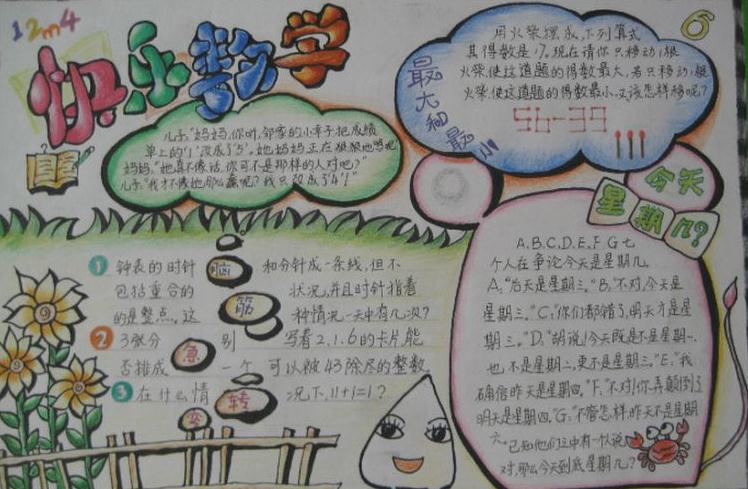 12m4
快乐数学
儿子:"妈妈,你听,邻家的小辛子把成绩
单上的'1'改成了'5',她妈妈正在狠狠地骂呢"
妈妈:"她真不像话,你可不是那样的人对吧?"
儿子:"我才不像她那么蠢呢?我只改成了'4'!"
6
最大和最小
用火柴摆成下列算式
其得数是17,现在请你只移动1根
火柴,使这道题的得数最大,若只移动1根
火柴,使这道题的得数最小,又该怎样移呢?
56-39
今天
星期几?
A、B、C、D、E、F、G七
个人在争论今天是星期几
A:"后天是星期三。"B:"不对,今天是
星期三。"C:"你们都错了,明天才是星
期三。"D:"胡说!今天既是不是星期一,
也不是星期二,更不是星期三。"E:"我
确信昨天是星期四。"F:"不对!你弄颠倒了
明天是星期四。"G:"不管怎样昨天不是星期
六。"已知他们之中有一个说
对,那么今天到底星期几?
脑筋急转弯
1 钟表的时针和分针成一条线,但不
包括重合的状况,并且时针指着
的是整点。这种情况一天中有几次?
2 3张分别写着2、1、6的卡片,能
否排成一个可以被43除尽的整数
3 在什么情况下,11+1=1?